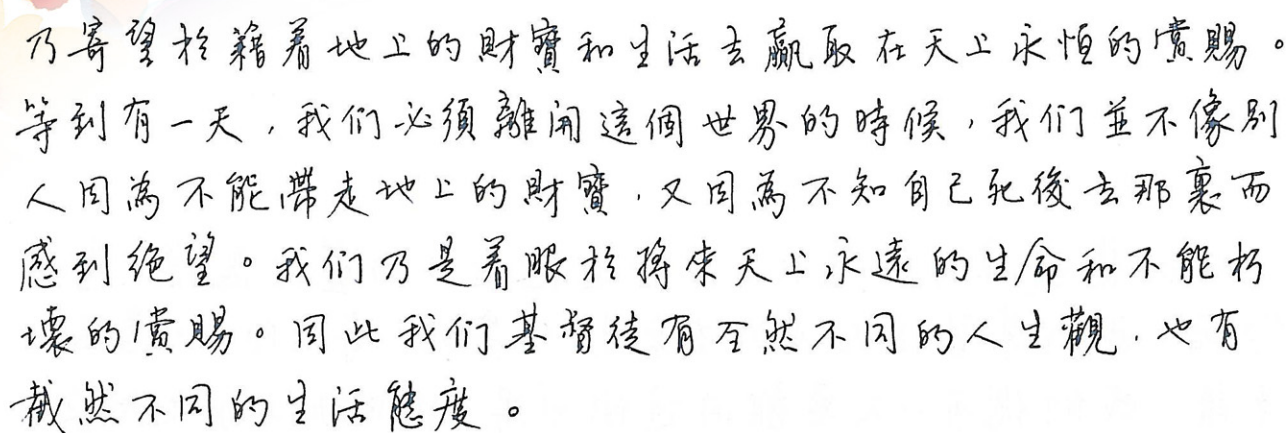 乃寄望於藉着地上的財寶和生活去贏取在天上永恒的償賜。
等到有一天，我们必須離開這個世界的時候，我们並不像別
人因為不能帶走地上的財寶，又因為不知自己死後去那裏而
感到絶望。我们乃是着眼於將來天上永遠的生命和不能朽
壞的償賜。因此我们基督徒有全然不同的人生觀，也有
截然不同的生活態度。